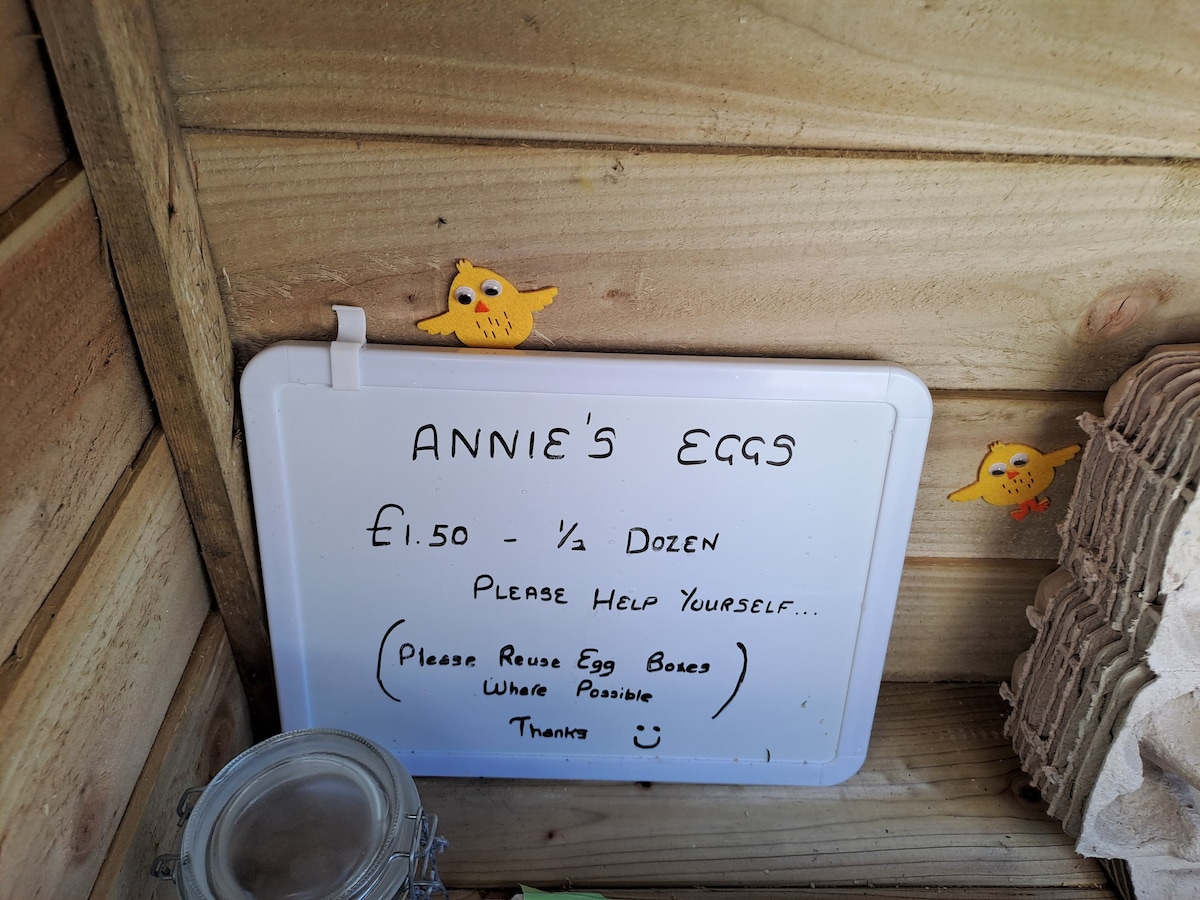 ANNIE'S EGGS
£1.50 - 1/2 DOZEN
PLEASE HELP YOURSELF...
(Please Reuse Egg Boxes
Where Possible)
Thanks :)